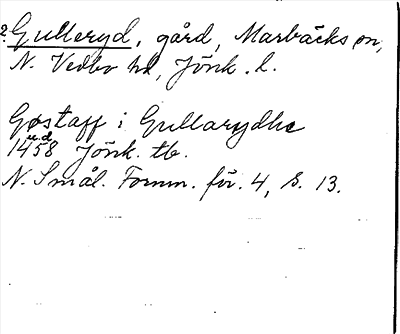 2. Gulleryd, gård, Marbäcks sn,
N. Vedbo hd, Jönk. l.
Gøstaff i Gullarydhe
u.d.
1458 Jönk. tb.
N. Smål. Fornm. för. 4, s. 13.